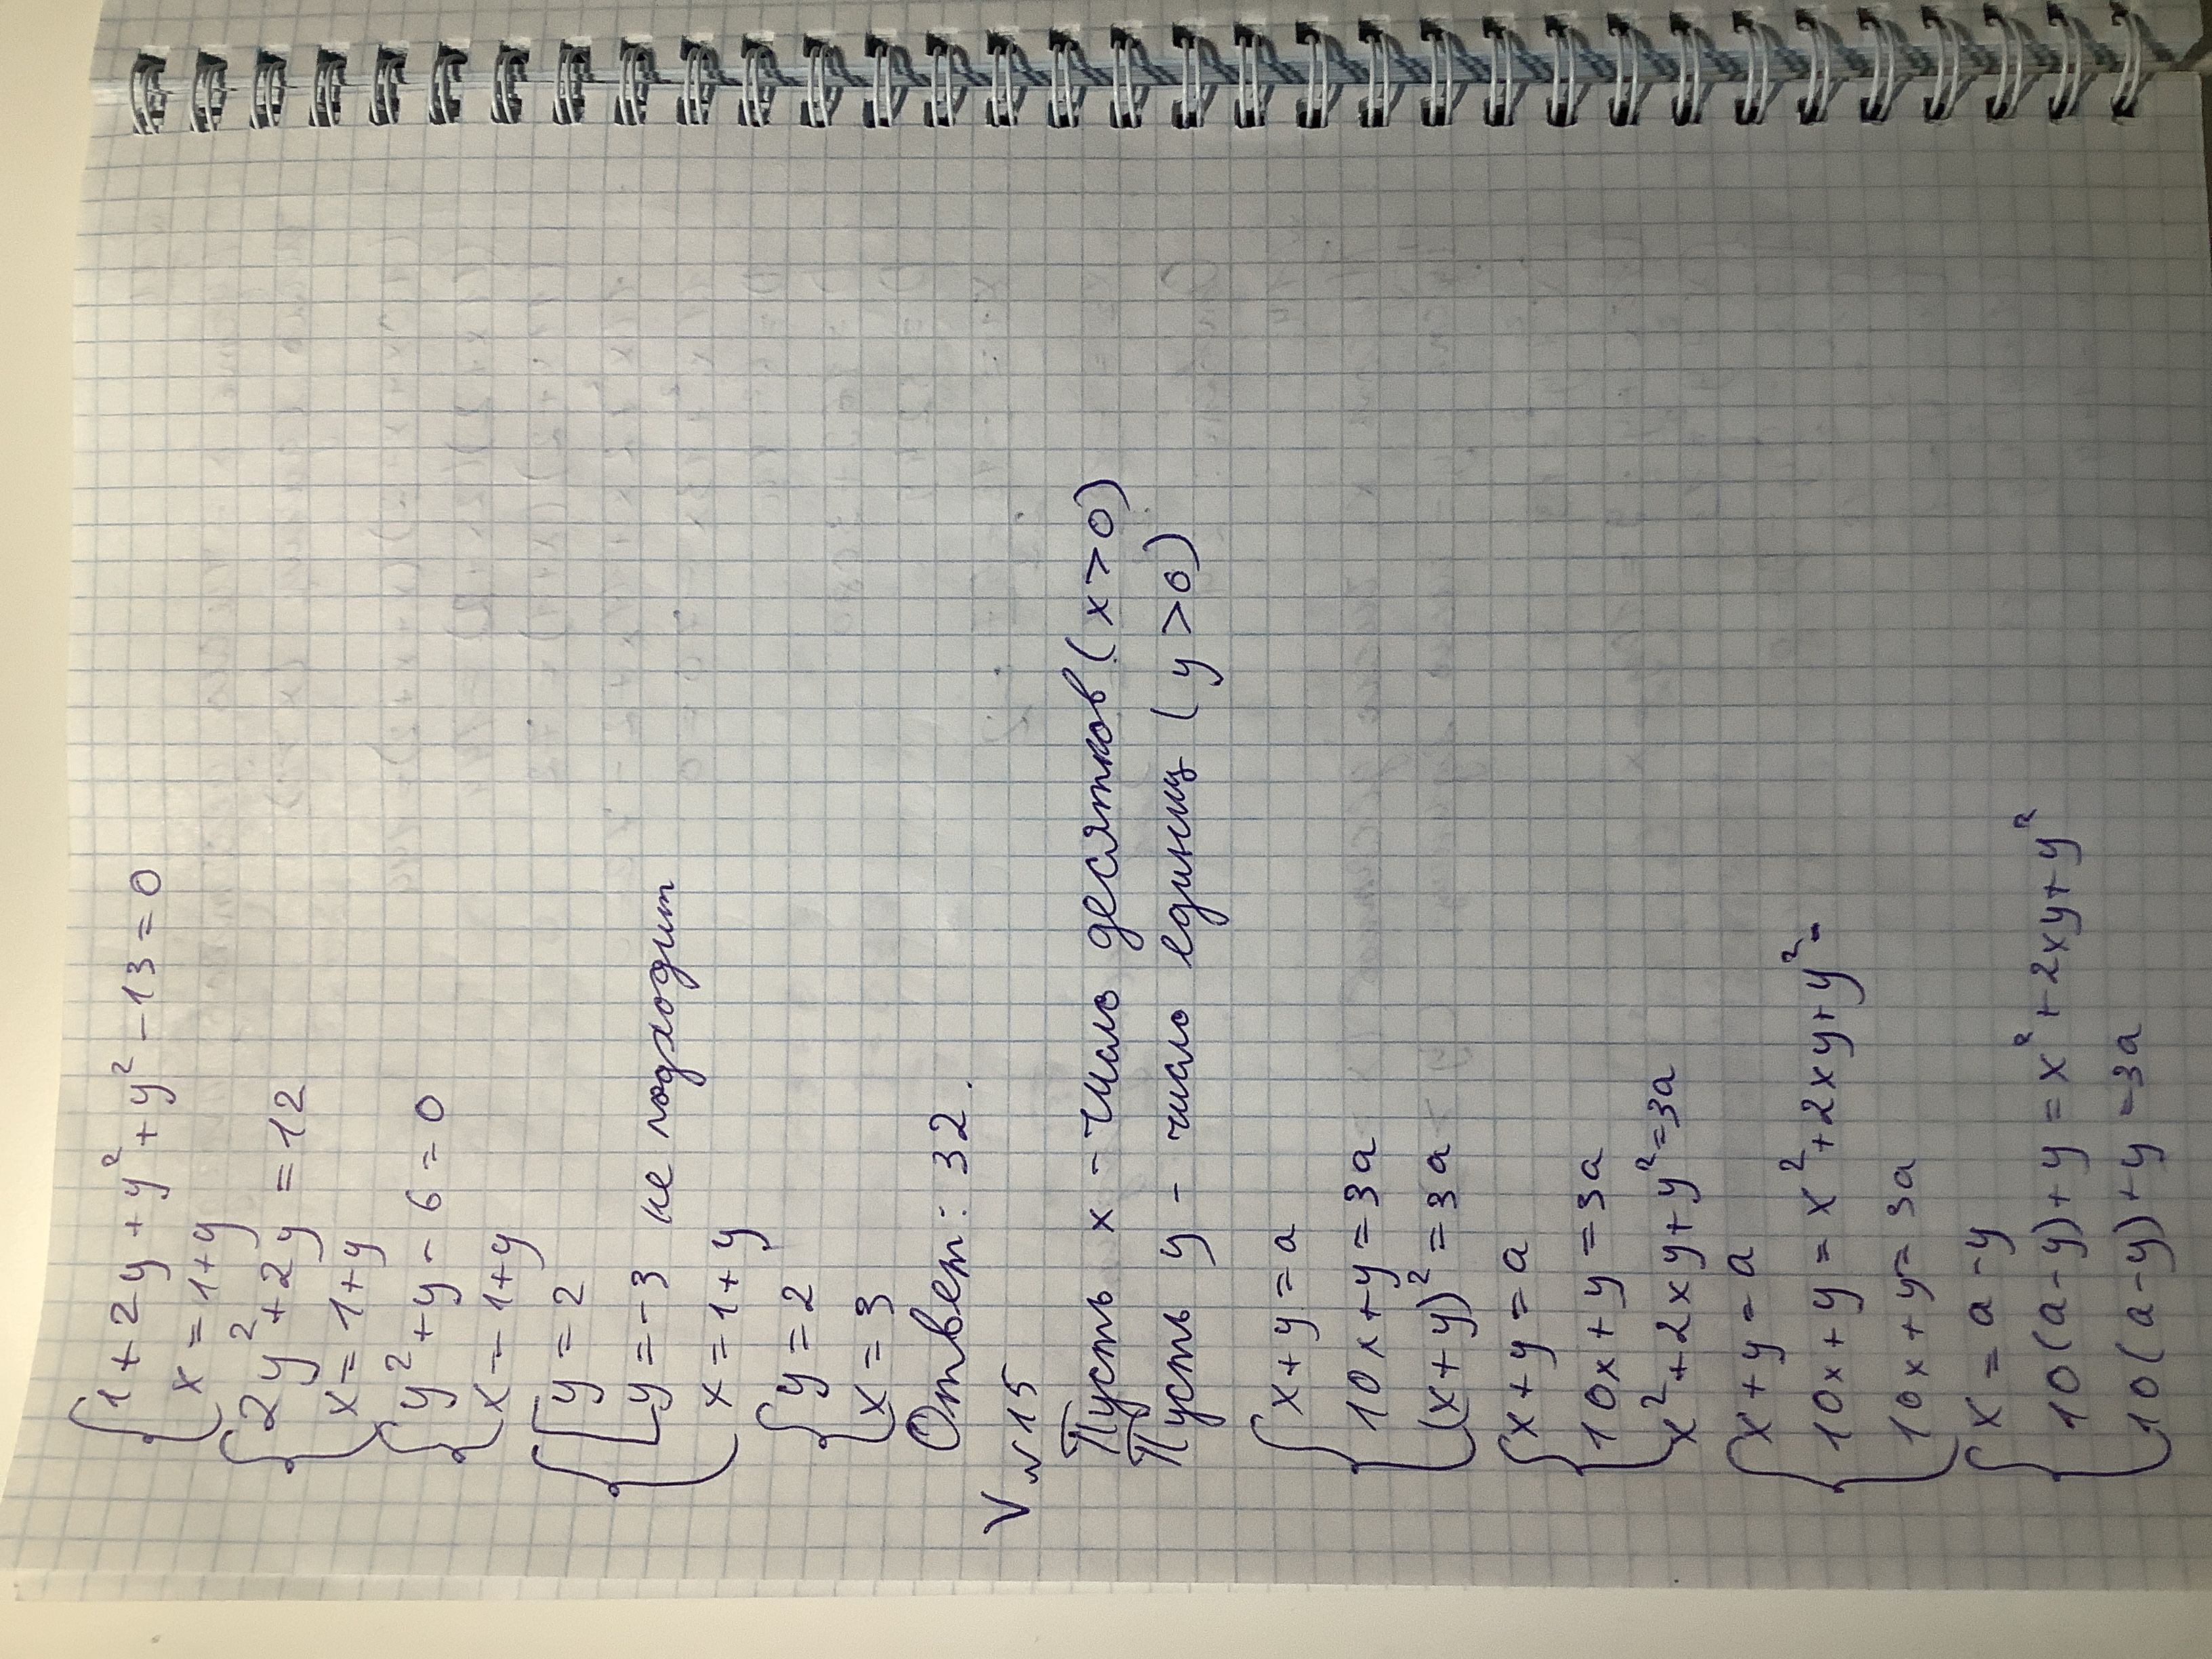 1 + 2y + y² + y² - 13 = 0
x = 1 + y
2y² + 2y = 12
x = 1 + y
y² + y - 6 = 0
x = 1 + y
y = 2
y = -3 не подходит
x = 1 + y
y = 2
x = 3
Ответ: 32.
V №15
Пусть x - число десятков (x > 0)
Пусть y - число единиц (y > 0)
x + y = a
10x + y = 3a
(x + y)² = 3a
x + y = a
10x + y = 3a
x² + 2xy + y² = 3a
x + y = a
10x + y = x² + 2xy + y² -
10x + y = 3a
x = a - y
10(a - y) + y = x² + 2xy + y²
10(a - y) + y = 3a